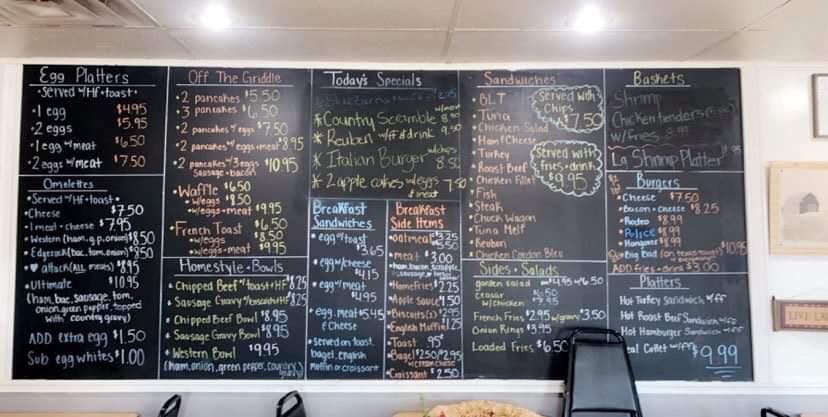 Egg Platters
• served w/Hf • toast •
• 1 egg $4.95
• 2 eggs $5.95
• 1 egg w/meat $6.50
• 2 eggs w/meat $7.50
Omelettes
• Served w/Hf + toast •
• Cheese $7.50
• 1 meat + cheese $7.95
• Western (ham, g.p, onion) $8.50
(bac, tom, onion) $8.50
• ♥ attack (ALL meats) $8.95
• Ultimate $10.95
(ham, bac, sausage, tom,
onion, green pepper, topped
with country gravy)
ADD extra egg $1.50
Sub egg whites $1.00
Off The Griddle
• 2 pancakes $5.50
• 3 pancakes $6.50
• 2 pancakes w/eggs $7.50
• 2 pancakes w/eggs+meat $8.95
• 2 pancakes w/3 eggs $10.95
sausage + bacon
• Waffle $6.50
w/eggs $8.50
w/eggs+meat $9.95
• French Toast $6.50
w/eggs $8.50
w/eggs+meat $9.95
Homestyle • Bowls
• Chipped Beef w/toast+Hf $8.25
• Sausage Gravy w/biscuits+Hf $8.25
• Chipped Beef Bowl $8.95
• Sausage Gravy Bowl $8.95
• Western Bowl $9.95
(ham, onion, green pepper, country gravy)
Today's Specials
* Country Scramble
* Reuben w/ff & drink 9.50
* Italian Burger w/chips 8.50
* 2 apple cakes w/eggs 7.50
& meat
Breakfast
Sandwiches
• egg w/toast
3.65
• egg w/cheese
$4.15
• egg w/meat
$4.95
• egg, meat $5.45
& Cheese
• served on toast,
bagel, english
muffin or croissant
Breakfast
Side Items
• oatmeal $3.25
$5.50
• meat 3.00
• ham, bacon, scrapple,
sausage, or turkey
• Homefries $2.25
• Apple Sauce $1.50
• Biscuits (2) $2.95
• English Muffin 1.25
• Toast 95¢
• Bagel $2.50/$2.95
w/cream cheese
• Croissant $2.50
Sandwiches
• BLT
• Tuna
• Chicken Salad
• Ham & Cheese
• Turkey
• Roast Beef
• Chicken Fillet
• Fish
• Steak
• Chuck Wagon
• Tuna Melt
• Reuben
• Chicken Cordon Bleu
served with
Chips
$7.50
served with
fries + drink
$9.95
Sides + Salads
garden salad sm $4.95 $6.50
ceasar
w/chicken $7.95
French Fries $2.95 w/gravy $3.50
Onion Rings $3.95
Loaded Fries $6.50
Baskets
Shrimp
Chicken tenders
w/fries 8.99
Lg Shrimp Platter
Burgers
• Cheese $7.50
• Bacon + Cheese $8.25
• Rodeo $8.99
• Police $8.99
• Hangover $8.99
• Big Bad (on texas toast) $10.95
ADD fries + drink $3.00
Platters
Hot Turkey Sandwich w/ff
Hot Roast Beef Sandwich w/ff
Hot Hamburger Sandwich w/ff
Cutlet w/ff
$9.99
LIVE